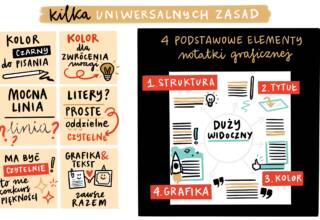 kilka UNIWERSALNYCH ZASAD
KOLOR
CZARNY
do PISANIA
KOLOR
dla
ZWRÓCENIA
uwagi
MOCNA
LINIA
linia?
LITERY?
PROSTE
oddzielne
CZYTELNE
MA BYĆ
CZYTELNIE!
to nie
konkurs
PIĘKNOŚCI
GRAFIKA&
TEKST
zawsze
RAZEM
4 PODSTAWOWE ELEMENTY
notatki graficznej
1. STRUKTURA
2. TYTUŁ
DUŻY
WIDOCZNY
3. KOLOR
4. GRAFIKA